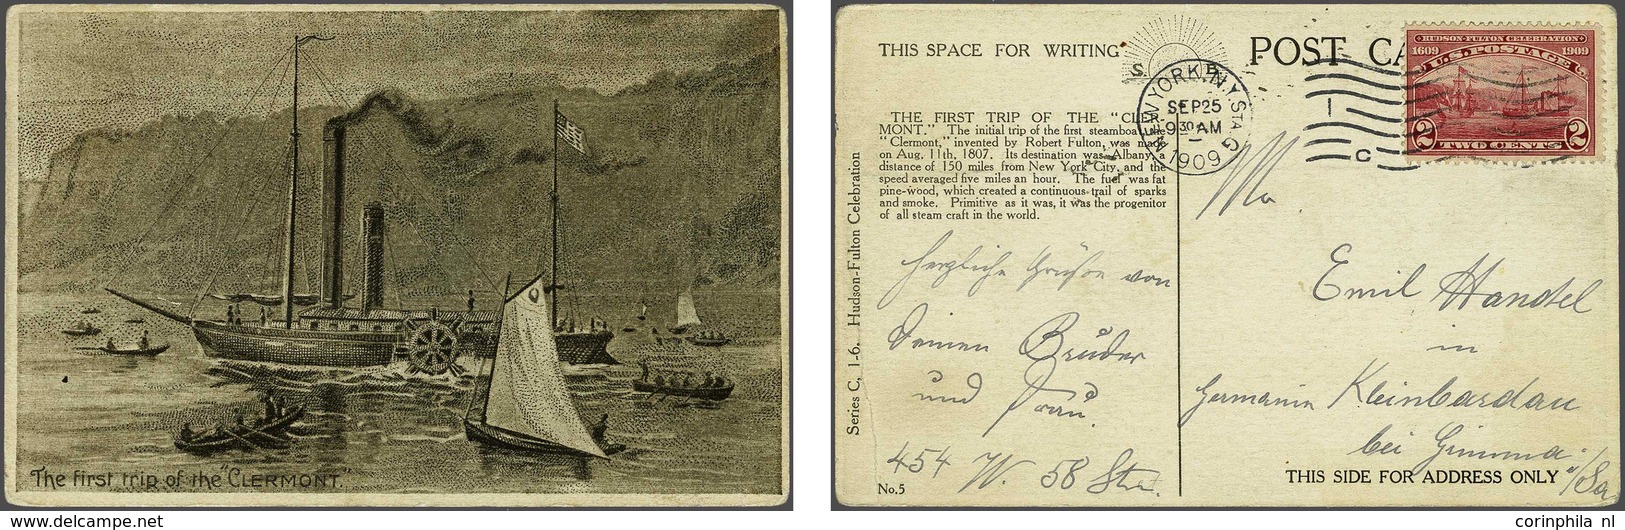 The first trip of the "CLERMONT."
THIS SPACE FOR WRITING
POST CA
S. B.
HUDSON-FULTON CELEBRATION
1609 1909
U.S. POSTAGE
2 2
TWO CENTS
NEW YORK, N.Y. STA. G
SEP 25
9 30 AM
1909
C
THE FIRST TRIP OF THE "CLER-
MONT." The initial trip of the first steamboat, the
"Clermont," invented by Robert Fulton, was made
on Aug. 11th, 1807. Its destination was Albany, a
distance of 150 miles from New York City, and the
speed averaged five miles an hour. The fuel was fat
pine-wood, which created a continuous trail of sparks
and smoke. Primitive as it was, it was the progenitor
of all steam craft in the world.
Series C, 1-6. Hudson-Fulton Celebration
herzliche Grüße von
Deinen Bruder
und Frau
454 W. 58 Str.
No. 5
Emil Handel
in
Germanien Kleinbardau
bei Grimma
i/Sa
THIS SIDE FOR ADDRESS ONLY
corinphila nl
www.delcampe.net